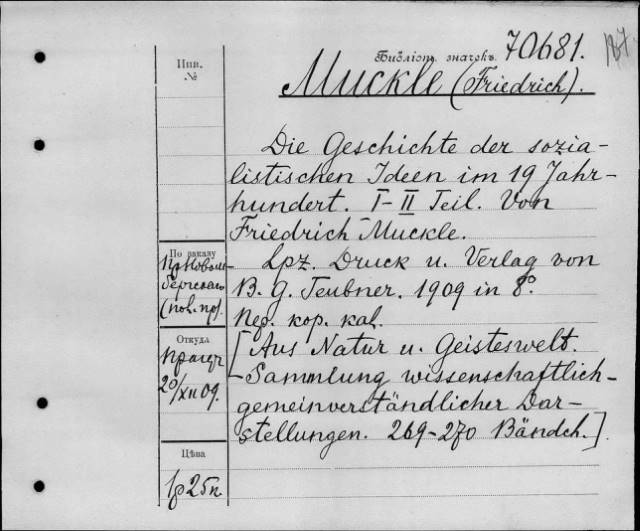 Библіот. значекъ 70681.
Muckle (Friedrich).
Инв.
№
Die Geschichte der sozia-
listischen Ideen im 19 Jahr-
hundert. I-II Teil. Von
Friedrich Muckle.
По заказу
(пол. пр).
Lpz. Druck u. Verlag von
B. G. Teubner. 1909 in 8º
Пер. кор. кал.
Откуда
20/XII 09.
[Aus Natur u. Geisteswelt.
Sammlung wissenschaftlich-
gemeinverständlicher Dar-
stellungen. 269-270 Bändch.]
Цѣна
1р 25к